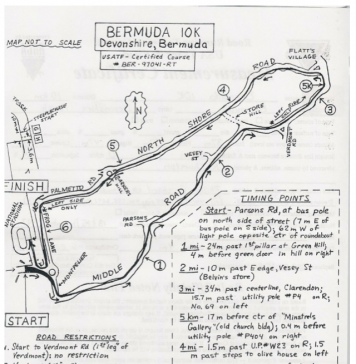 BERMUDA 10K
Devonshire, Bermuda
USATF-Certified Course
# BER-97041-RT
MAP NOT TO SCALE
FLATT'S
VILLAGE
ROAD
5K
3
4
STORE
HILL
SHORE
NORTH
N
VERDMONT
RD
VESEY
ST
2
5
PALMETTO
RD
LEFT SIDE
ONLY
FINISH
PARSONS
RD
ROAD
6
MIDDLE
1
MONTPELIER
START
TIMING POINTS
Start - Parsons Rd, at bus pole
on north side of street (7m E of
bus pole on S side); 62m W of
light pole opposite ctr of roundabout
1 mi - 24m past 1st pillar at Green Hill;
4m before green door in hill on right
2 mi - 10m past E edge, Vesey St
(Belvin's store)
3 mi - 34m past centerline, Clarendon;
15.7m past utility pole #P4 on R;
No. 64 on left
5 km - 17m before ctr of "Minstrel's
Gallery" (old church bldg); 0.4m before
utility pole #P404 on right
4 mi - 1.5m past U.P.#WE3 on R; 1.5
m past steps to olive house on left
ROAD RESTRICTIONS
1. Start to Verdmont Rd (1st leg of
Verdmont); no restriction